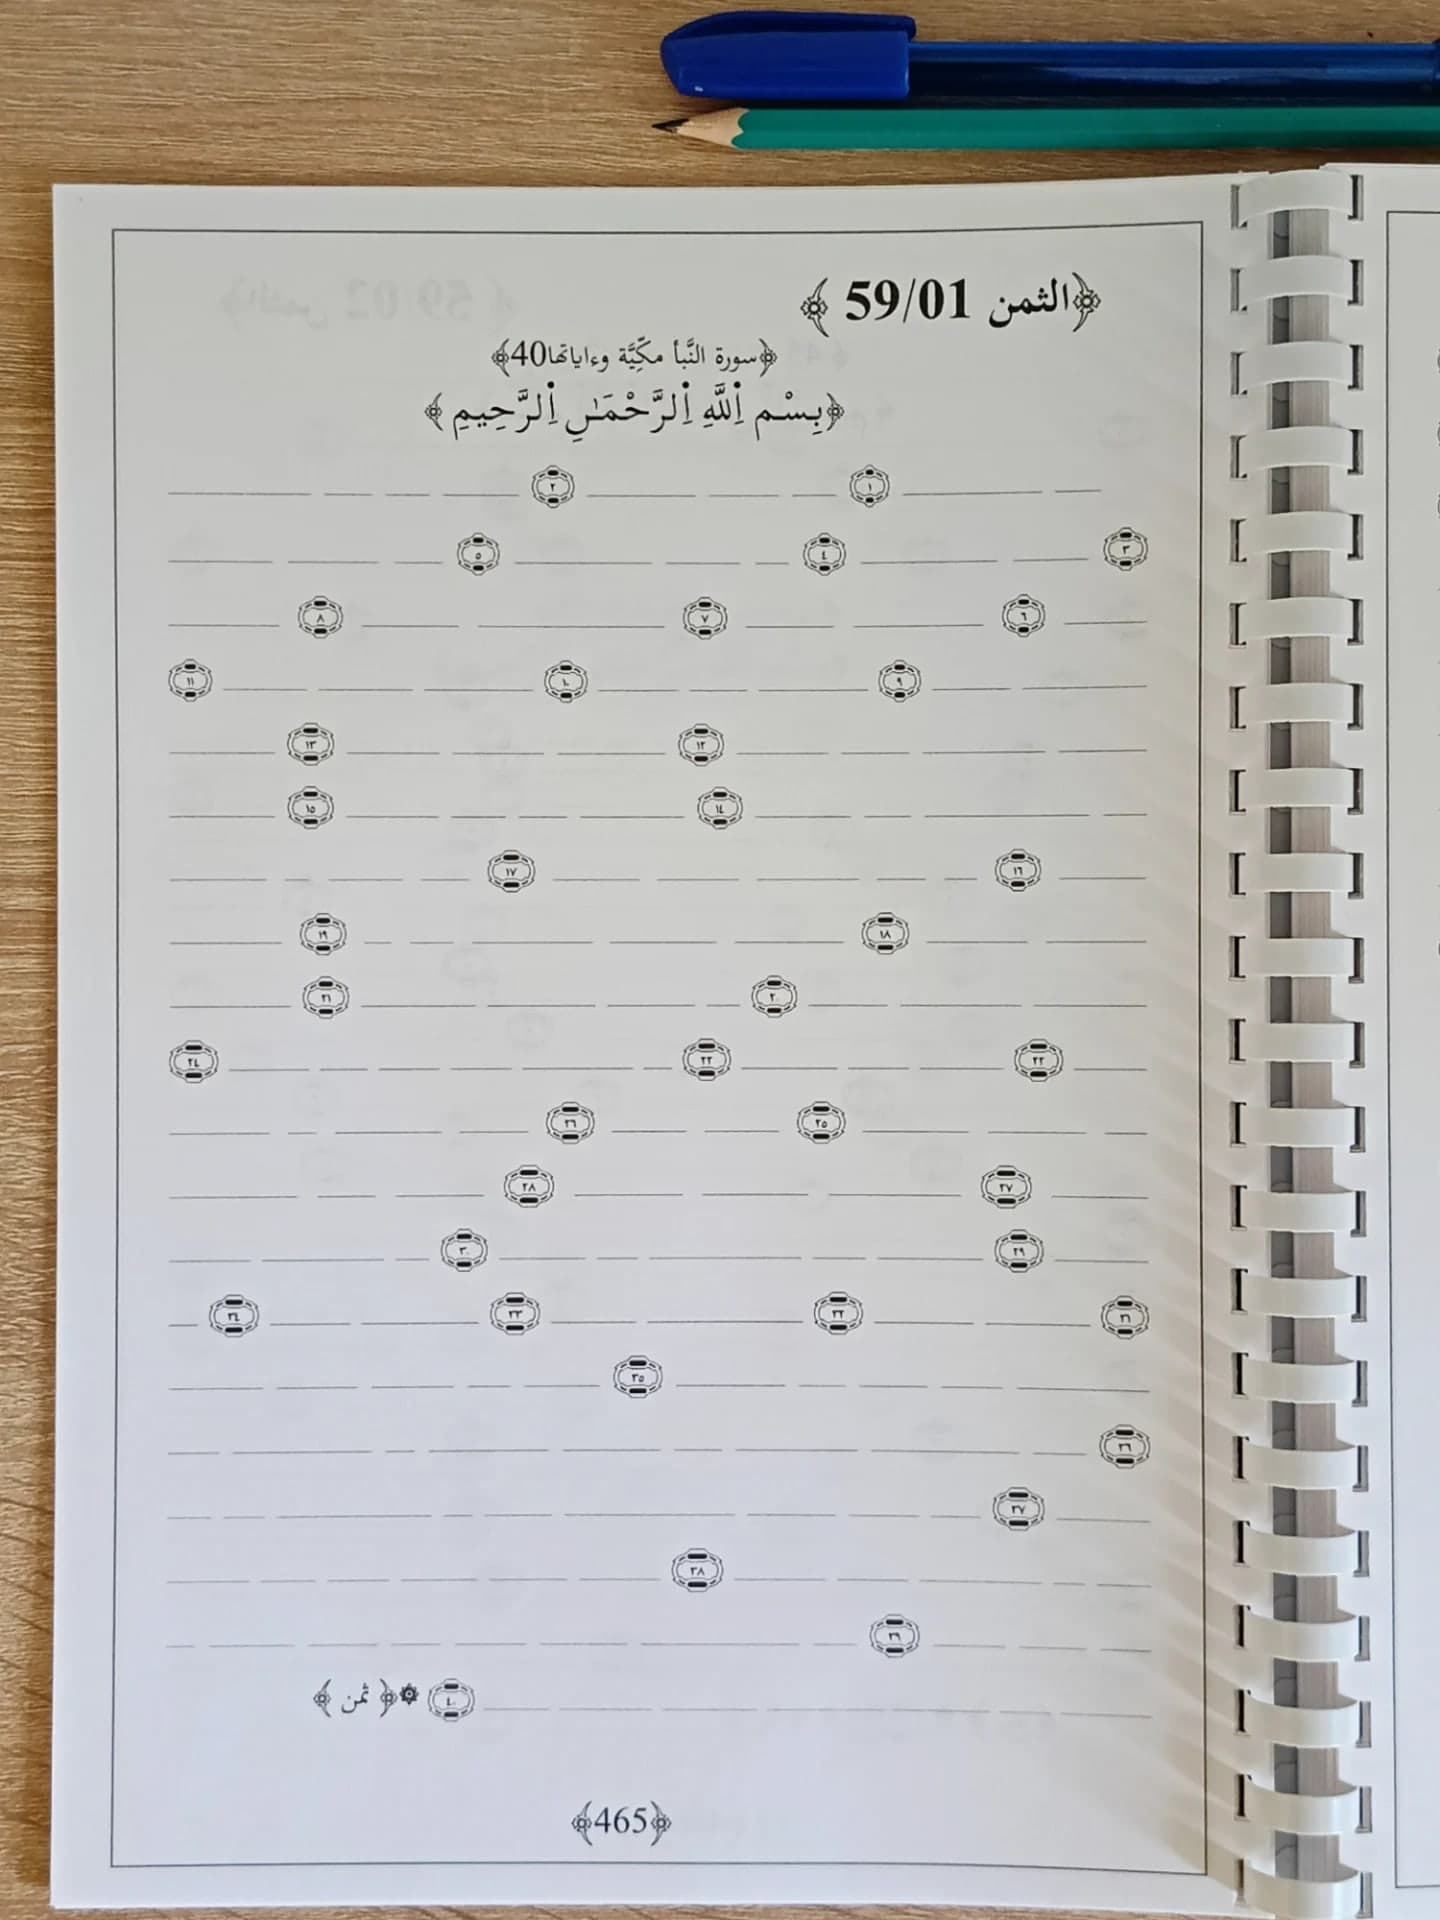 ﴿الثمن 59/01 ﴾
﴿سورة النَّبأ مكِّيَّة وءاياتها40﴾
﴿بِسْمِ اِ۬للَّهِ اِ۬لرَّحْمَٰنِ اِ۬لرَّحِيمِ ﴾
١ ٢
٣ ٤ ٥
٦ ٧ ٨
٩ ١٠ ١١
١٢ ١٣
١٤ ١٥
١٦ ١٧
١٨ ١٩
٢٠ ٢١
٢٢ ٢٣ ٢٤
٢٥ ٢٦
٢٧ ٢٨
٢٩ ٣٠
٣١ ٣٢ ٣٣ ٣٤
٣٥
٣٦
٣٧
٣٨
٣٩
٤٠ ۞﴿ ثمن ﴾
﴿465﴾